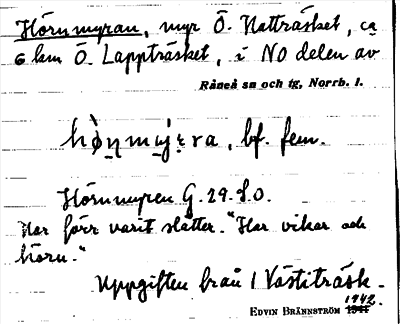 Hörnmyran, myr Ö. Natträsket, ca
6 km Ö. Lappträsket, i NO delen av
Råneå sn och tg, Norrb. l.
bf. fem.
Hörnmyren G. 29. S.O.
Har förr varit slåtter. "Har vikar och
hörn."
Uppgiften från 1 Västiträsk.
1942.
EDVIN BRÄNNSTRÖM 1941